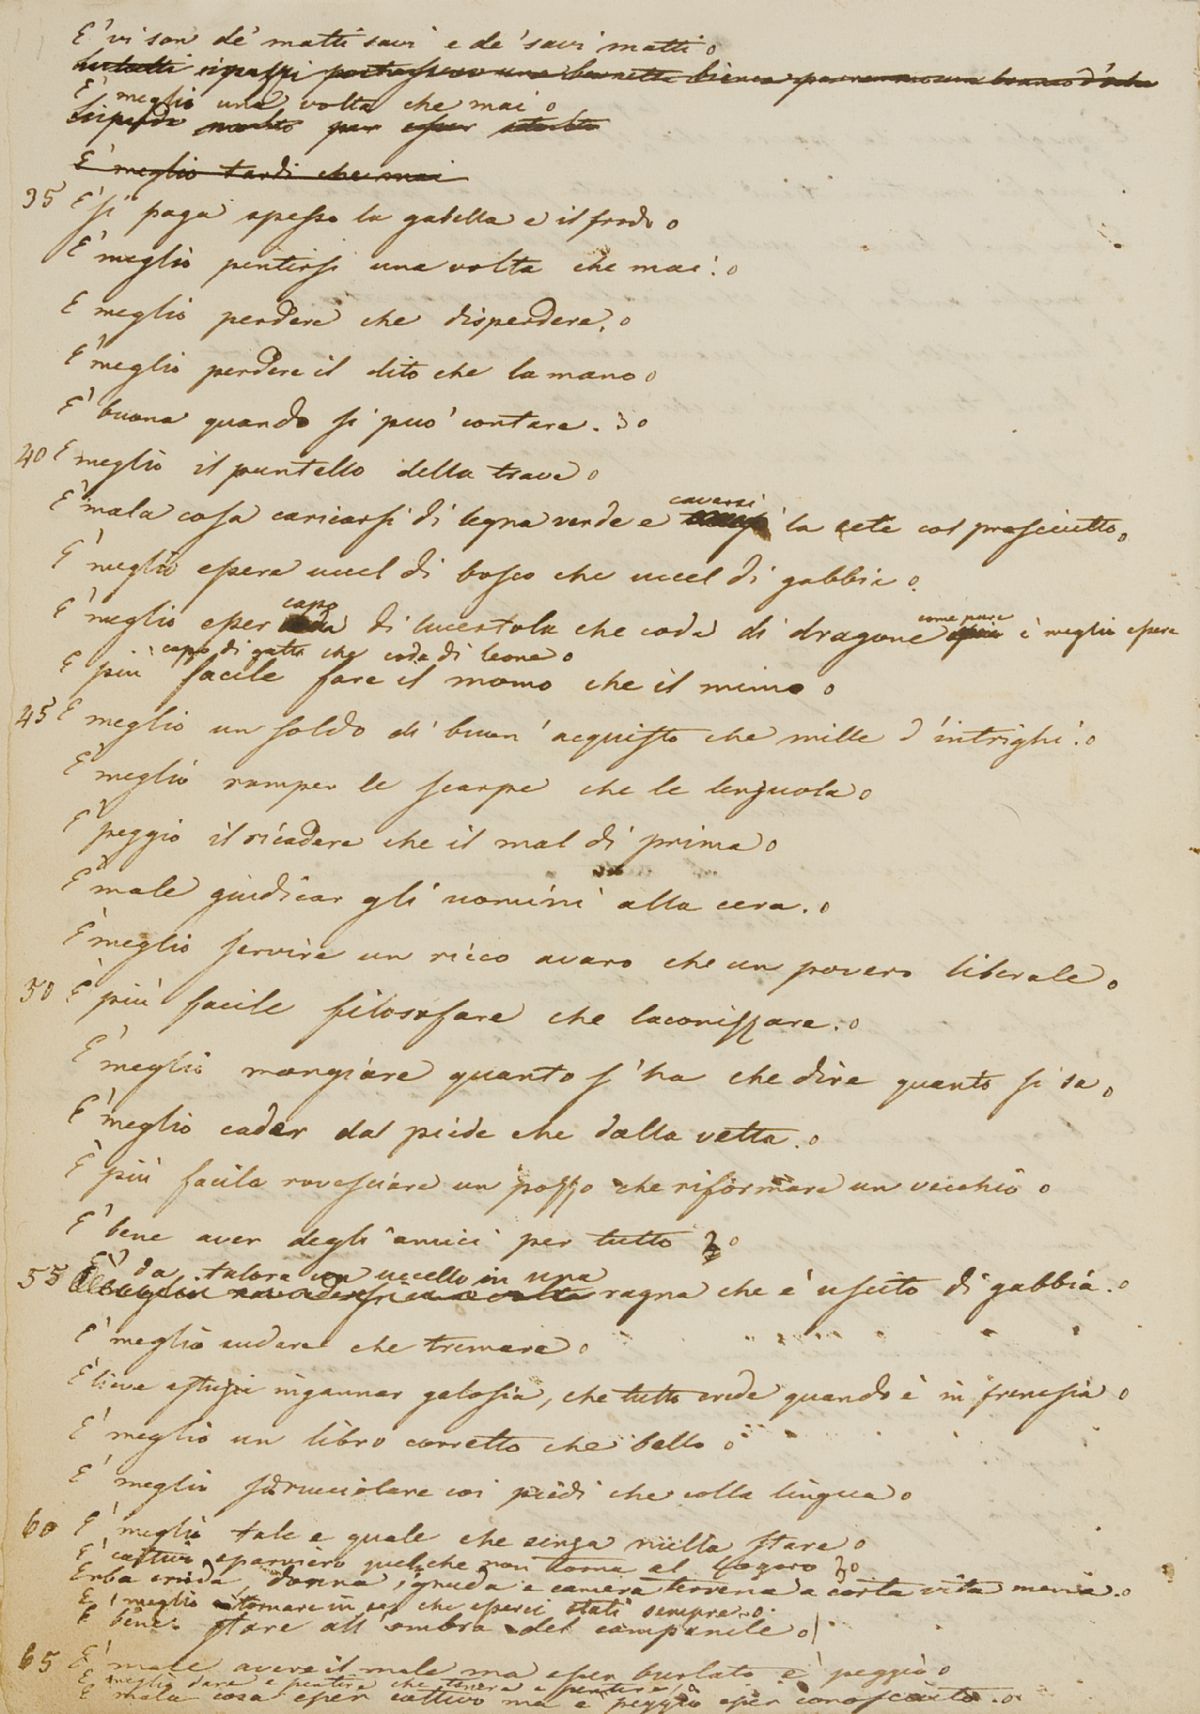 E' vi son de' matti savi e de' savi matti o
se tutti i pazzi portassero una berretta bianca parremmo un branco d'oche
E' meglio una volta che mai o
molto per esser
E' meglio tardi che mai
35 E' si paga spesso la gabella e il frodo o
E' meglio pentirsi una volta che mai. o
E meglio perdere che disperdere. o
E' meglio perdere il dito che la mano o
E' buona quando si può contare. o
40 E meglio il puntello della trave o
cavarsi
E' mala cosa caricarsi di legna verde e la sete col presciutto. o
E' meglio essere uccel di bosco che uccel di gabbia o.
capo come pure
E' meglio esser di lucertola che coda di dragone è meglio essere
capo di gatta che coda di leone o
E più facile fare il momo che il mimo o
45 E meglio un soldo di buon' acquisto che mille d'intrighi. o
E' meglio romper le scarpe che le lenzuola o
E' peggio il ricadere che il mal di prima o
E' male giudicar gli uomini alla cera. o
E' meglio servire un ricco avaro che un povero liberale o
50 E' più facile filosofare che laconizzare. o
E' meglio mangiare quanto s'ha che dire quanto si sa o
E' meglio cader dal piede che dalla vetta. o
E' più facile rovesciare un pozzo che riformare un vecchio o
E' bene aver degli amici per tutto o
E' dà talora un uccello in una
55 ragna che è uscito di gabbia. o
E' meglio sudare che tremare o
E' lieve astuzia ingannar gelosia, che tutto crede quando è in frenesia o
E' meglio un libro corretto che bello o
E' meglio sdrucciolare coi piedi che colla lingua o
60 E' meglio tale e quale che senza nulla stare o
E' cattivo sparviero quel che non torna al logoro o
Erba cruda, donna ignuda e camera terrena a corta vita mena. o
E' meglio tornare in se che esserci stati sempre. o
E' bene stare all'ombra del campanile o
65 E' male avere il male ma esser burlato è peggio o
E' meglio dare e pentire che tenere e pentire o
E' mala cosa esser cattivo ma è peggio esser conosciuto. o